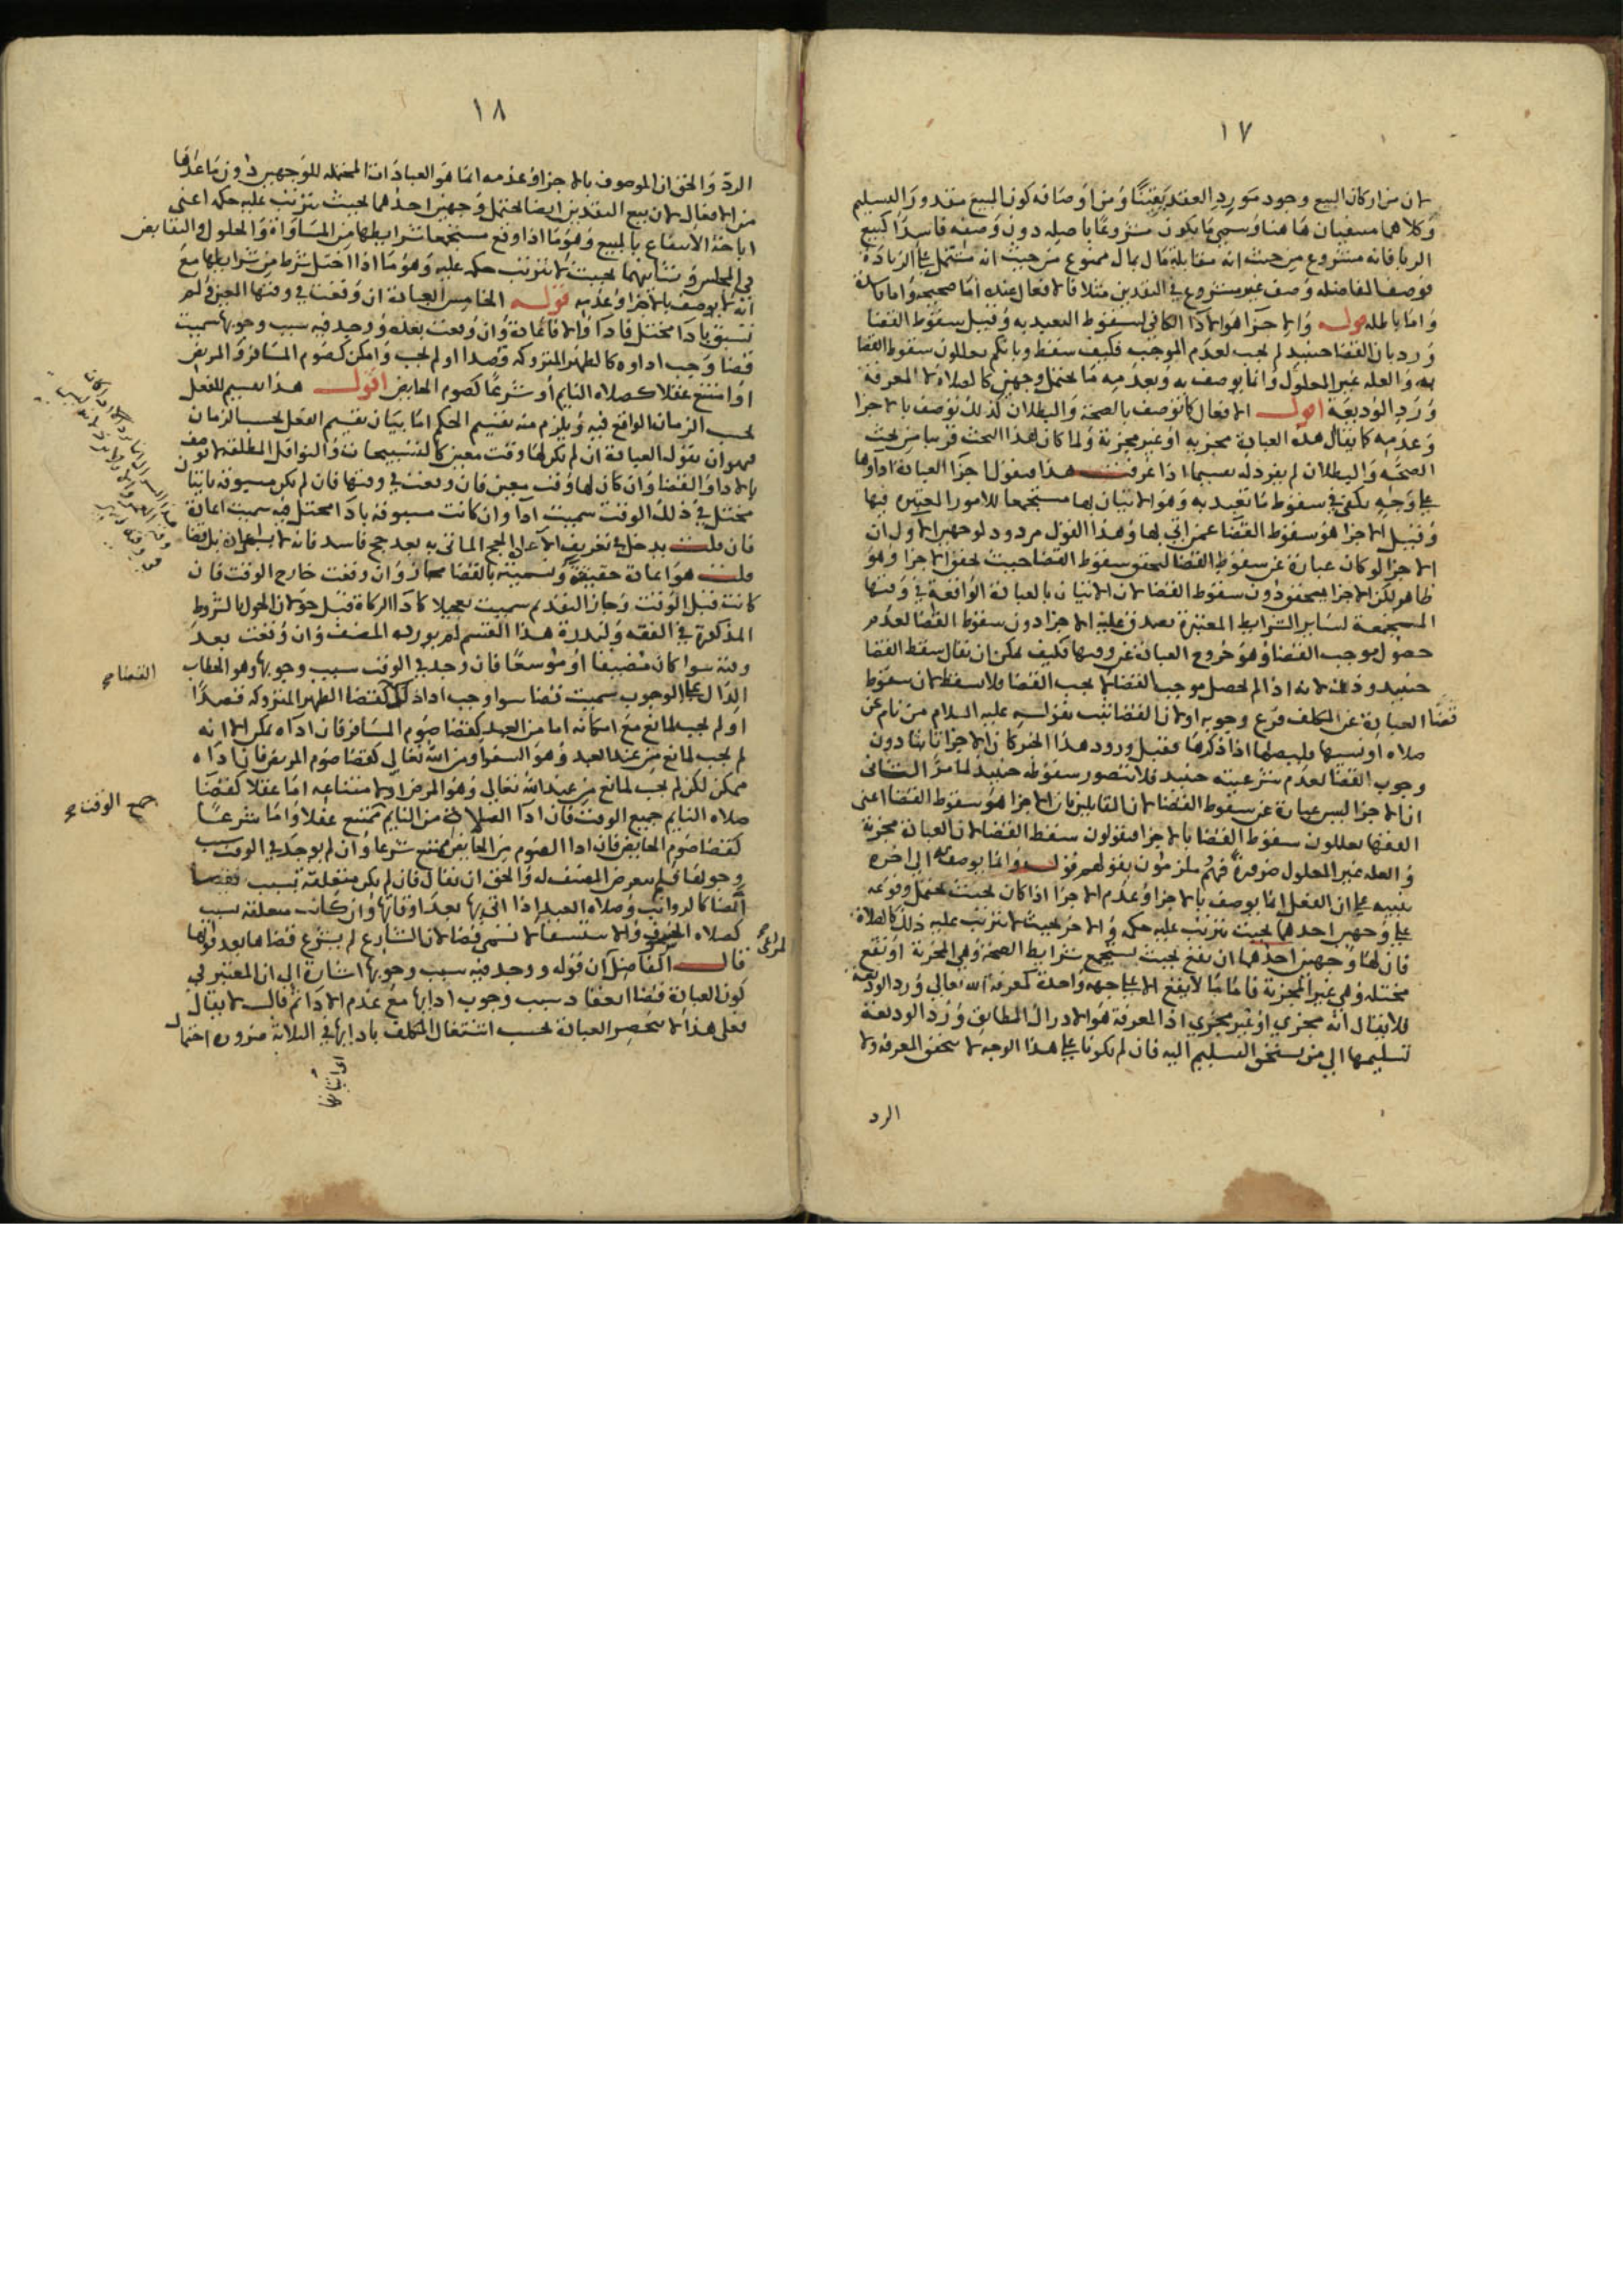 ١٧
لان من اركان البيع وجود مورد العقد يقينًا ومن اوصافه كون المبيع مقدور التسليم
وكلاهما منفيان هاهنا وسمي ما يكون مشروعًا باصله دون وصفه فاسدًا كبيع
الربا فانه مشروع من حيث انه مقابلة مال بمال ممنوع من حيث انه مشتمل على الزيادة
فوصف المفاضله وصف غير مشروع في النقدين مثلا فالافعال عنده اما صحيحه واما فاسدة
واما باطله قوله والاجزا هو الادا الكافي لسقوط التعبد به وقيل سقوط القضا
ورد بان القضا حينيد لم يجب لعدم الموجب فكيف سقط وبانكم تعللون سقوط القضا
به والعله غير المعلول وانما يوصف به وبعدمه ما يحتمل وجهين كالصلاه لا المعرفة
ورد الوديعة اقول الافعال كما توصف بالصحة والبطلان كذلك توصف بالاجزا
وعدمه كما يقال هذه العبادة مجزيه او غير مجزية ولما كان هذا البحث قريبا من بحث
الصحة والبطلان لم يفرد له تقسيما اذا عرفت هذا فنقول اجزا العبادة اداوها
على وجه يكفي في سقوط ما تعبد به وهو الاتيان بها مستجمعا للامور المعتبره فيها
وقيل الاجزا هو سقوط القضا عمن اتي بها وهذا القول مردود لوجهين الاول ان
الاجزا لو كان عبارة عن سقوط القضا لتحقق سقوط القضا حيث تحقق الاجزا وهو
ظاهر لكن الاجزا يتحقق دون سقوط القضا لان الاتيان بالعبادة الواقعة في وقتها
المستجمعة لساير الشرايط المعتبرة يصدق عليه الاجزا دون سقوط القضا لعدم
حصول موجب القضا وهو خروج العبادة عن وقتها فكيف يمكن ان يقال سقط القضا
حينيد وذلك لانه اذا لم يحصل موجب القضا لم يجب القضا فلا يسقط لان سقوط
قضا العبادة عن المكلف فرع وجوبه اولان القضا ثبت بقوله عليه السلام من نام عن
صلاه او نسيها فليصلها اذا ذكرها فقبل ورود هذا الخبر كان الاجزا ثابتا دون
وجوب القضا لعدم شرعيته حينيد فلا يتصور سقوطه حينيد لما مر الثاني
ان الاجزا ليس عبارة عن سقوط القضا لان القايلين بان الاجزا هو سقوط القضا اعني
الفقها يعللون سقوط القضا بالاجزا فيقولون سقط القضا لان العبادة مجزية
والعله غير المعلول ضرورة فهم ملزمون بقولهم قوله وانما يوصف به الي اخره
تنبيه على ان الفعل انما يوصف بالاجزا وعدم الاجزا اذا كان بحيث يحتمل وقوعه
على وجهين احدهما بحيث يترتب عليه حكمه والاخر بحيث لا يترتب عليه ذلك كالصلاة
فان لها وجهين احدهما ان تقع بحيث تستجمع شرايط الصحة وهي المجزية او تقع
مختله وهي غير المجزية فاما ما لا يقع الا على جهه واحدة كمعرفة الله تعالي ورد الوديعة
فلا يقال انه مجزي او غير مجزي اذ المعرفة هو الادراك المطابق ورد الوديعة
تسليمها الي من يستحق التسليم اليه فان لم يكونا على هذا الوجه لا يتحقق المعرفه ولا
الرد
١٨
الرد والحق ان الموصوف بالاجزا وعدمه انما هو العبادات المحتمله للوجهين دون ما عداها
من الافعال لان بيع النقدين ايضا يحتمل وجهين احدهما بحيث يترتب عليه حكمه اعني
اباحة الانتفاع بالمبيع وهو ما اذا وقع مستجمعا شرايطها من المساواة والحلول والتقابض
في المجلس وثانيهما بحيث لا يترتب حكمه عليه وهو ما اذا اختل شرط من شرايطها مع
انه لا يوصف بالاجزا وعدمه قوله الخامس العبادة ان وقعت في وقتها المعين ولم
تسبق بادا مختل فادا والا فاعادة وان وقعت بعده ووجد فيه سبب وجوبها سميت
قضا وجب اداوه كالظهر المتروكه قصدا او لم يجب وامكن كصوم المسافر والمريض
او امتنع عقلا كصلاه النايم او شرعًا كصوم الحايض اقول هذا تقسيم للفعل
بحسب الزمان الواقع فيه ويلزم منه تقسيم الحكم اما بيان تقسيم الفعل بحسب الزمان
فهو ان نقول العبادة ان لم يكن لها وقت معين كالتسبيحات والنوافل المطلقه لا توصف
بالادا والقضا وان كان لها وقت معين فان وقعت في وقتها فان لم يكن مسبوقه باتيان
مختل في ذلك الوقت سميت ادا وان كانت مسبوقة بادا مختل فيه سميت اعادة
فان قلت يدخل في تعريف الاعادة الحج الماتي به بعد حج فاسد فانه لا يسمي اعادة بل قضا
قلت هو اعادة حقيقة وتسميته بالقضا مجاز وان وقعت خارج الوقت فان
كانت قبل الوقت وجاز التقدم سميت تعجيلا كادا الزكاة قبل حولان الحول بالشروط
المذكورة في الفقه ولندرة هذا القسم لم يورده المصنف وان وقعت بعد
وقته سوا كان مضيقا او موسعًا فان وجد في الوقت سبب وجوبها وهو الخطاب
الدال على الوجوب سميت قضا سوا وجب اداذلك كقضا الظهر المتروكه قصدًا
او لم يجب لمانع مع امكانه اما من العبد كقضا صوم المسافر فان اداه ممكن الا انه
لم يجب لمانع من عند العبد وهو السفر او من الله تعالي كقضا صوم المريض فان اداه
ممكن لكن لم يجب لمانع من عند الله تعالي وهو المرض او لامتناعه اما عقلا كقضا
صلاه النايم جميع الوقت فان ادا الصلاة من النايم ممتنع عقلا واما شرعًا
كقضا صوم الحايض فان ادا الصوم من الحايض ممتنع شرعا وان لم يوجد في الوقت سبب
وجوبها فلم يتعرض المصنف له والحق ان يقال فان لم يكن متعلقة بسبب
القضا كالرواتب وصلاه العيد اذا اتي بها بعد اوقاتها وان كانت متعلقه بسبب
كصلاه الخسوف والاستسقا لا تسمي قضا لان الشارع لم يشرع قضاها بعد فواتها
قال الفاضل ان قوله ووجد فيه سبب وجوبها اشارة الي ان المعتبر في
كون العبادة قضا انعقاد سبب وجوب ادايها مع عدم الادا ثم قال لا يقال
فعلى هذا لا تنحصر العبادة بحسب اشتغال المكلف بادايها في الثلاثة ضروره احتمال
القضا صح
جميع الوقت صح